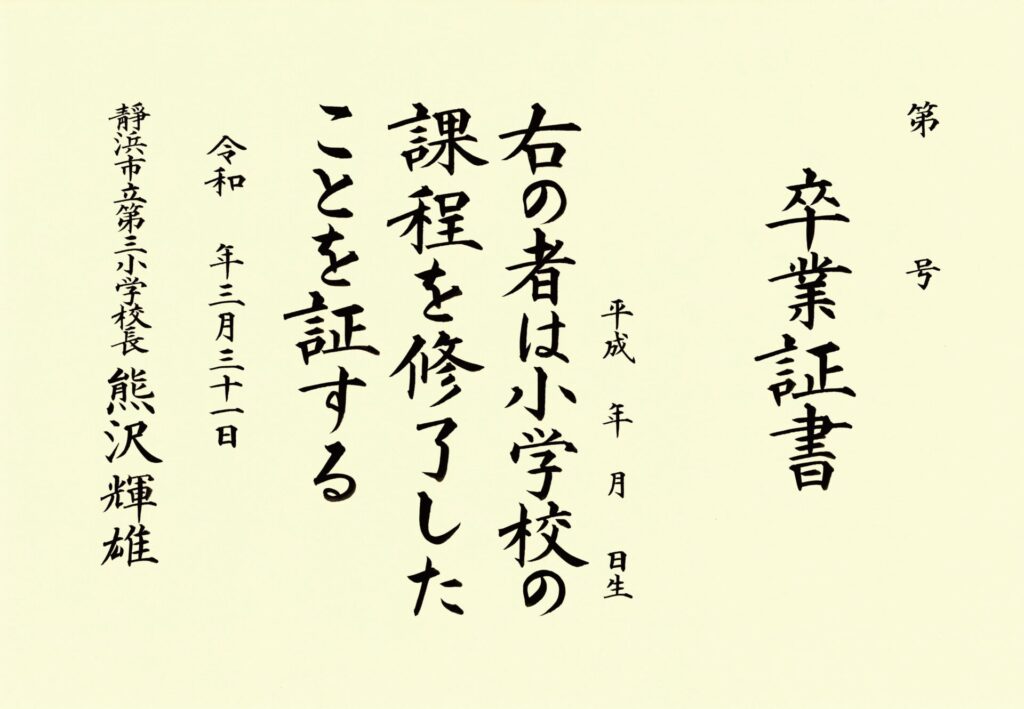 第 号
卒業証書
平成 年 月 日生
右の者は小学校の
課程を修了した
ことを証する
令和 年三月三十一日
靜浜市立第三小学校長 熊沢輝雄